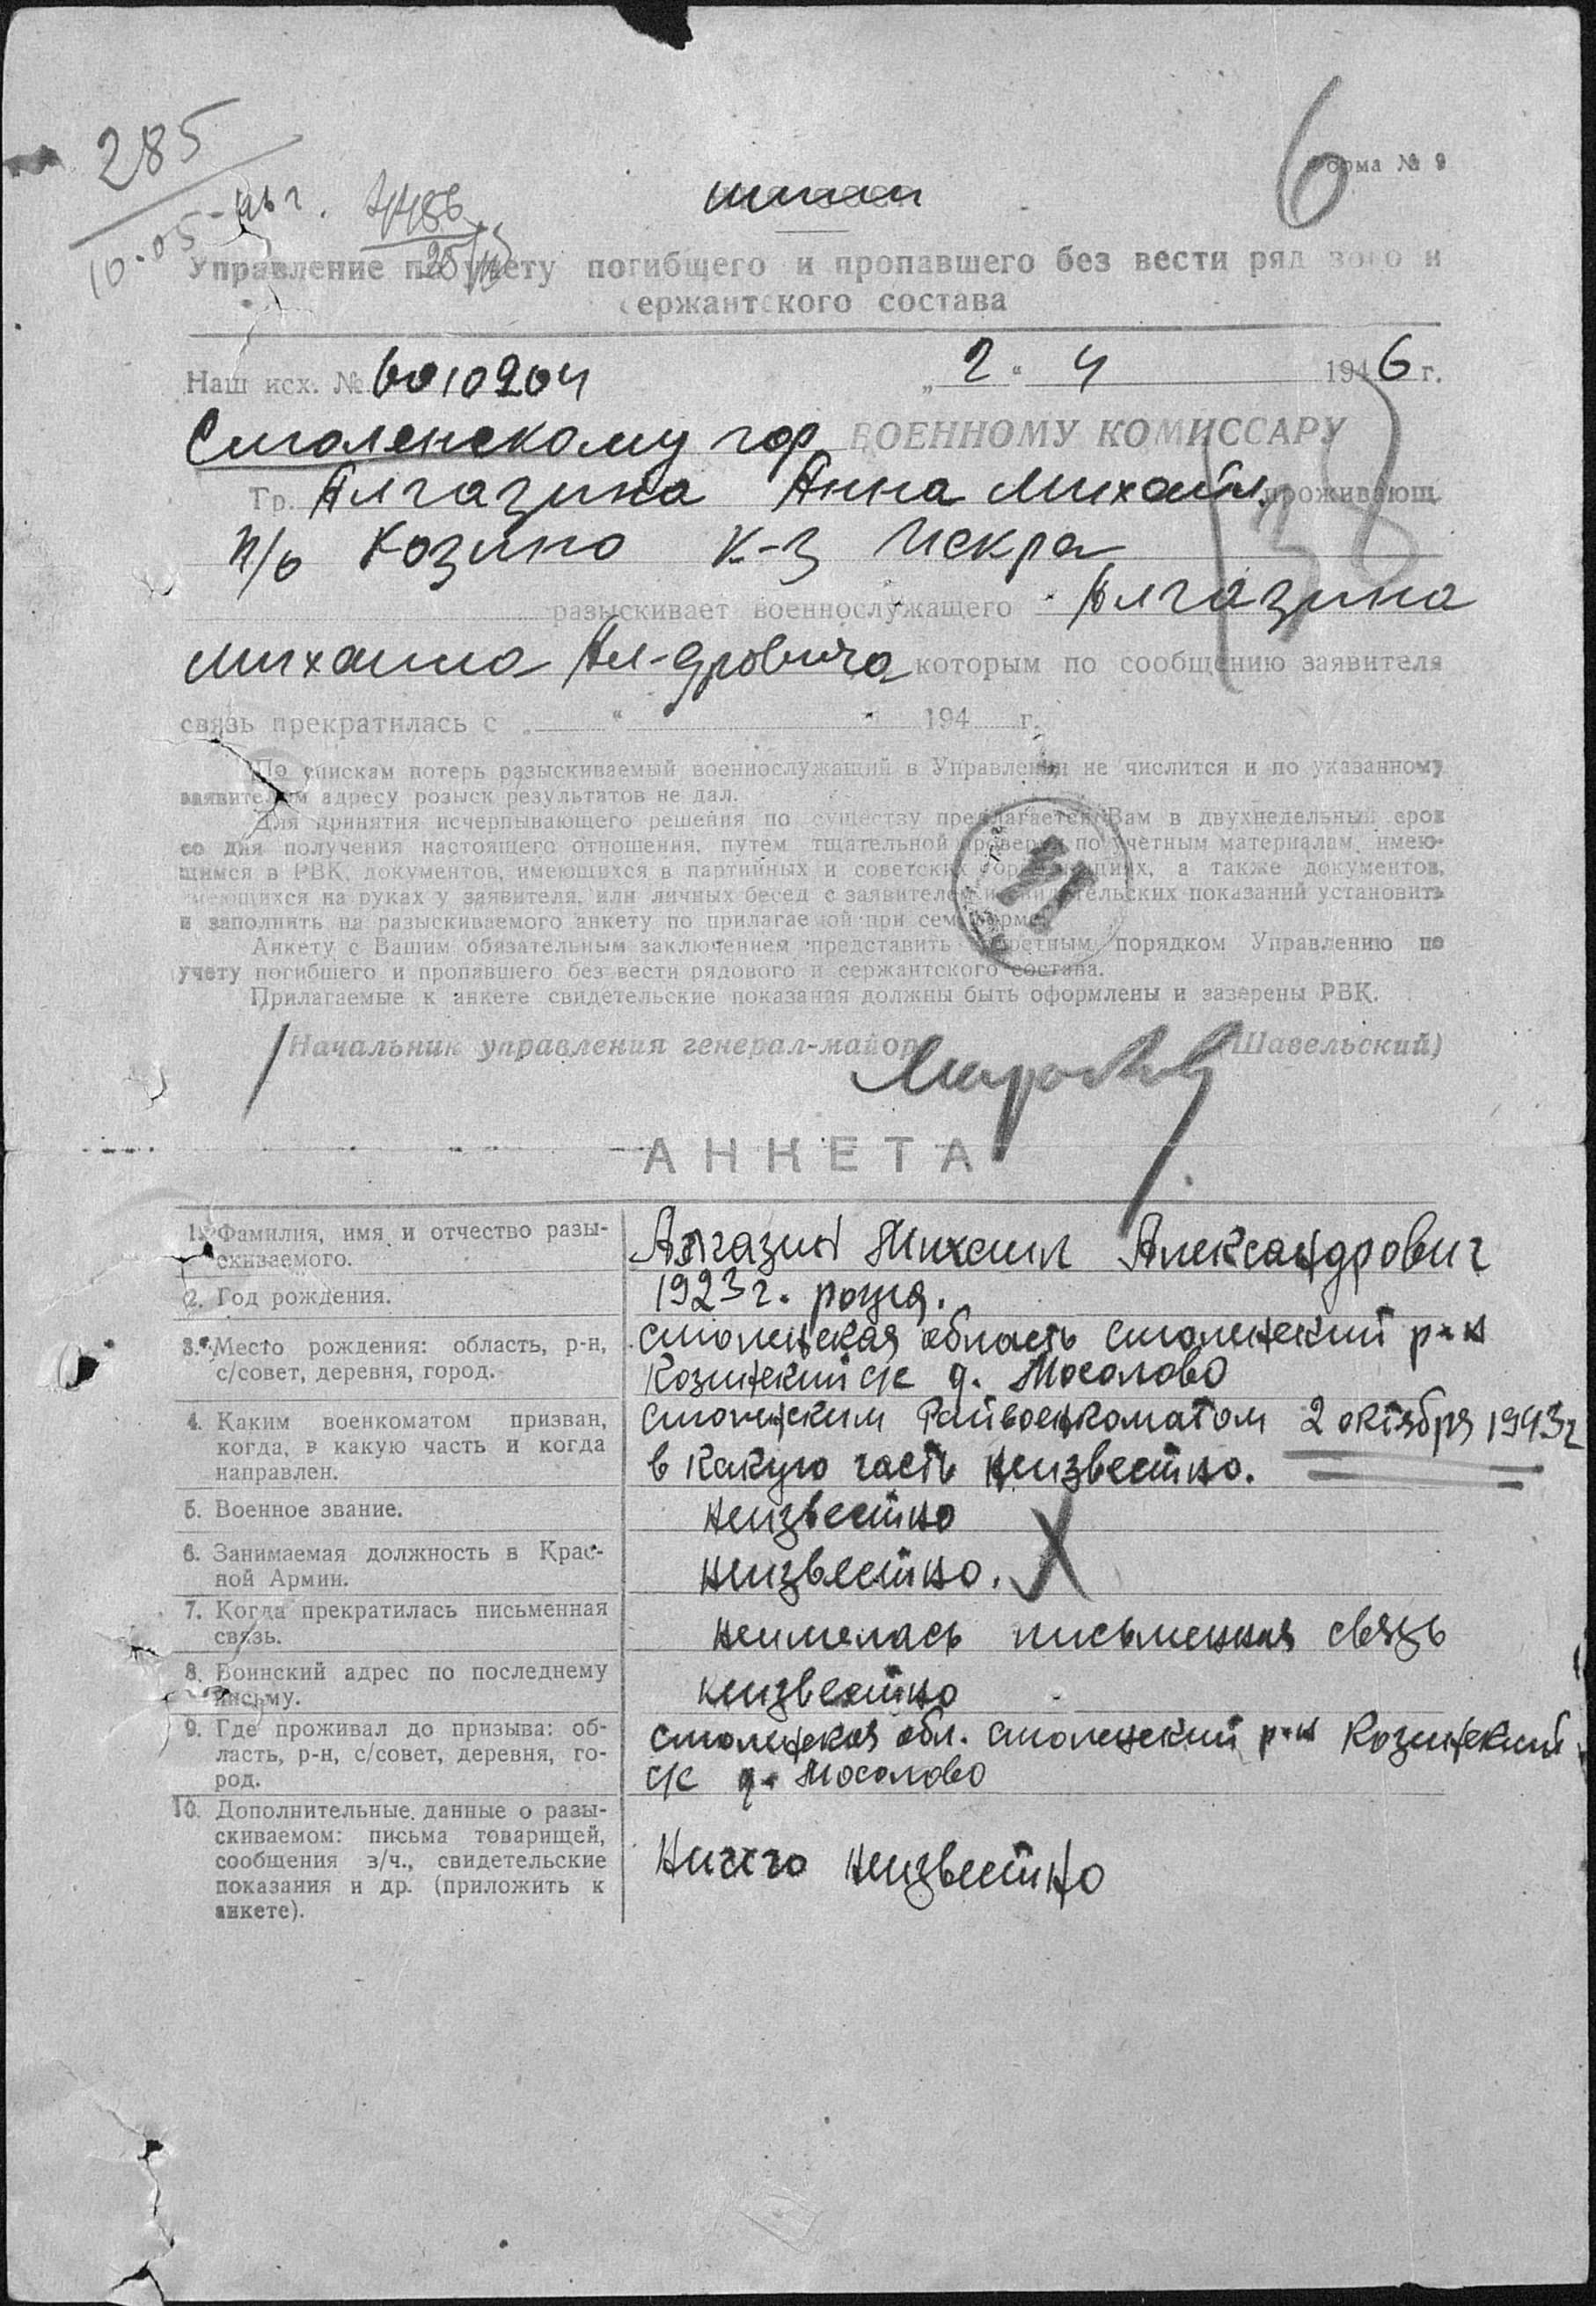 285
10-05-46 г.
6
Форма № 9
Управление по учету погибщего и пропавшего без вести рядового и
сержантского состава
Наш исх. № 6010204 „2“ 4 1946 г.
Смоленскому гор. ВОЕННОМУ КОМИССАРУ
Гр. Алгазина Анна Михайл. проживающ.
п/о Козино к-з Искра
разыскивает военнослужащего Алгазина
Михаила Ал-дровича которым по сообщению заявителя
связь прекратилась с „ “ 194 г.
По спискам потерь разыскиваемый военнослужащий в Управлении не числится и по указанному
заявителем адресу розыск результатов не дал.
Для принятия исчерпывающего решения по существу предлагается Вам в двухнедельный срок
со дня получения настоящего отношения, путем тщательной проверки по учетным материалам, имею-
щимся в РВК, документов, имеющихся в партийных и советских организациях, а также документов,
имеющихся на руках у заявителя, или личных бесед с заявителем и свидетельских показаний установить
и заполнить на разыскиваемого анкету по прилагаемой при сем форме.
Анкету с Вашим обязательным заключением представить секретным порядком Управлению по
учету погибшего и пропавшего без вести рядового и сержантского состава.
Прилагаемые к анкете свидетельские показания должны быть оформлены и заверены РВК.
Начальник управления генерал-майор (Шавельский)
АНКЕТА
1. Фамилия, имя и отчество разы-
скиваемого.
Алгазин Михаил Александрович
2. Год рождения.
1923 г. рожд.
3. Место рождения: область, р-н,
с/совет, деревня, город.
Смоленская область Смоленский р-н
Козинский с/с д. Мосолово
4. Каким военкоматом призван,
когда, в какую часть и когда
направлен.
Смоленским Райвоенкоматом 2 октября 1943 г
в какую часть неизвестно.
5. Военное звание.
неизвестно
6. Занимаемая должность в Крас-
ной Армии.
неизвестно.
7. Когда прекратилась письменная
связь.
неимелась письменная связь
8. Воинский адрес по последнему
письму.
неизвестно
9. Где проживал до призыва: об-
ласть, р-н, с/совет, деревня, го-
род.
Смоленская обл. Смоленский р-н Козинский
с/с д. Мосолово
10. Дополнительные данные о разы-
скиваемом: письма товарищей,
сообщения в/ч., свидетельские
показания и др. (приложить к
анкете).
Ничего неизвестно